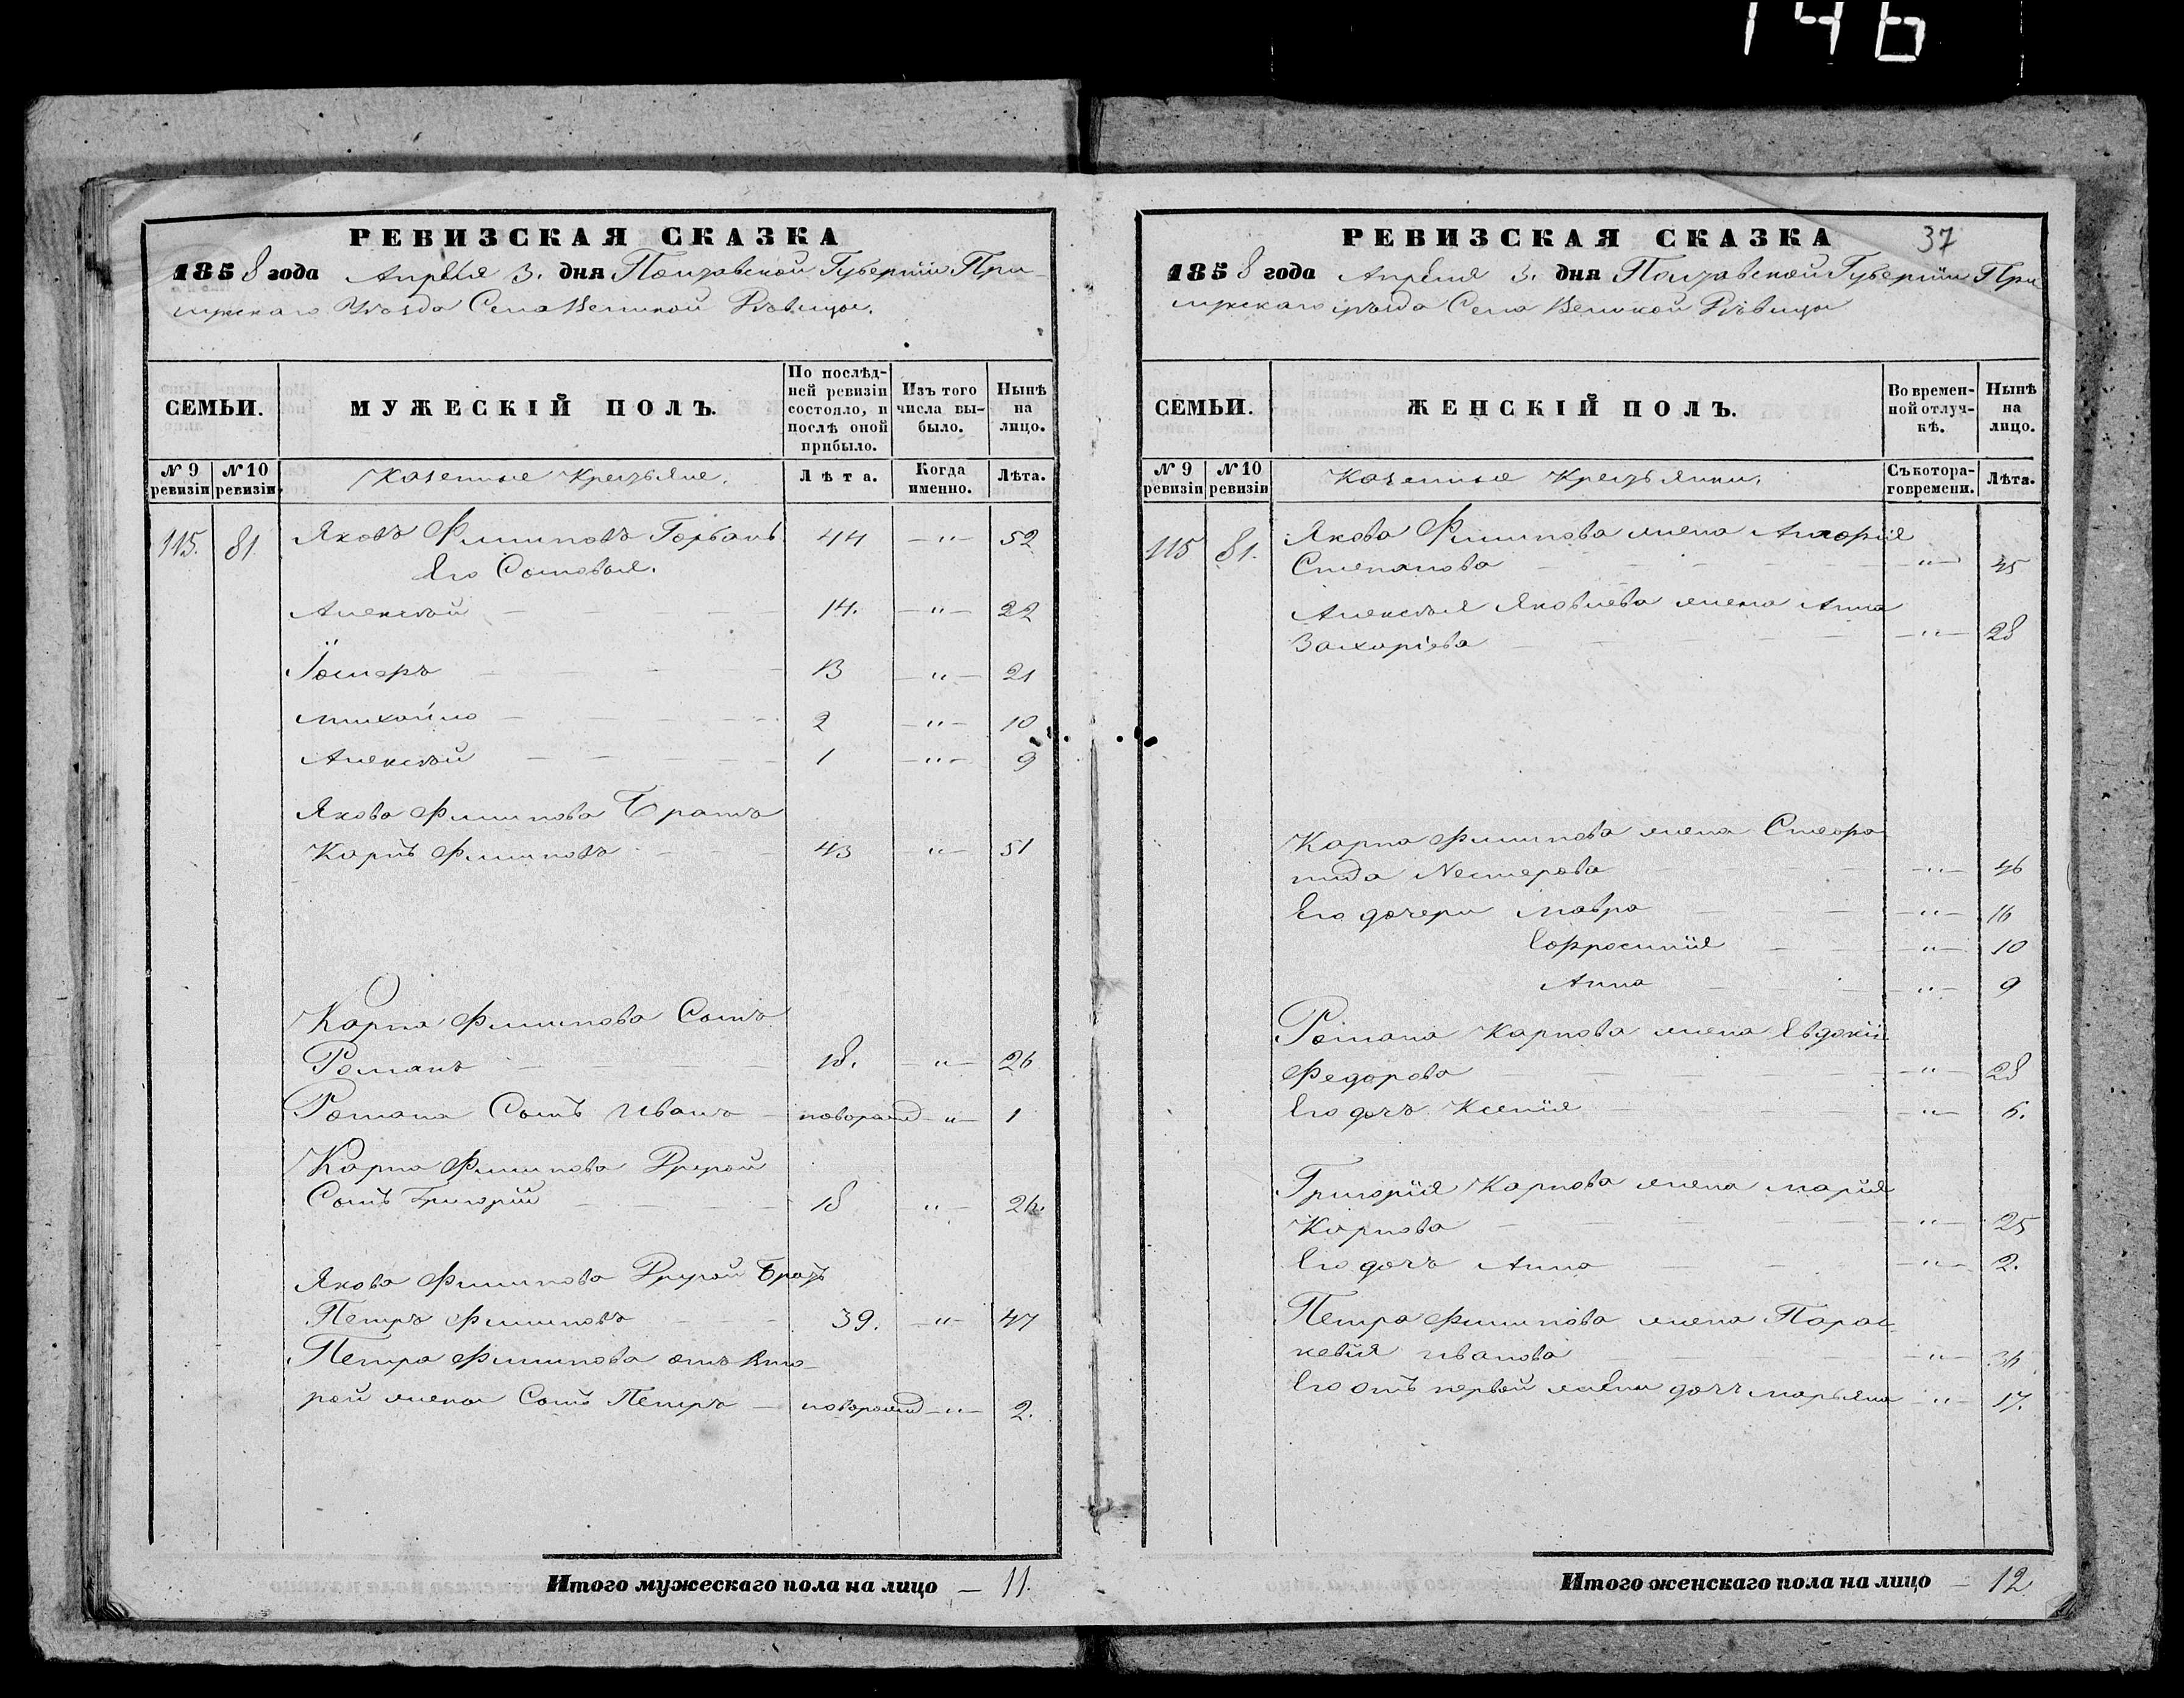 146
РЕВИЗСКАЯ СКАЗКА
1858 года Апрѣля 3. дня Полтавской Губерніи При-
лукскаго Уѣзда Села Великой Дѣвицы.
СЕМЬИ.
МУЖЕСКІЙ ПОЛЪ.
По послѣд-
ней ревизіи
состояло, и
послѣ оной
прибыло.
Изъ того
числа вы-
было.
Нынѣ
на
лицо.
№ 9
ревизіи
№ 10
ревизіи
Казенные Крестьяне.
Лѣта.
Когда
именно.
Лѣта.
115. 81. Яковъ Филиповъ Горбань 44 — " — 52
Его Сыновья.
Алексѣй 14. — " — 22
13 — " — 21
Михайло 2 — " — 10
Алексѣй 1 — " — 9
Якова Филипова Братъ
Карпъ Филиповъ 43 " 51
Карпа Филипова Сынъ
Романъ 18. — " — 26
Романа Сынъ Иванъ — новорожд — " — 1
Карпа Филипова Другой
Сынъ Григорій 18 " 26.
Якова Филипова Другой Братъ
Петръ Филиповъ 39. — " — 47
Петра Филипова отъ Вто-
рой жены Сынъ Петръ — новорожд — " — 2.
Итого мужескаго пола на лицо — 11.
37
РЕВИЗСКАЯ СКАЗКА
1858 года Апрѣля 3. дня Полтавской Губерніи При
лукскаго уѣзда Села Великой Дѣвицы
СЕМЬИ.
ЖЕНСКІЙ ПОЛЪ.
Во времен-
ной отлуч-
кѣ.
Нынѣ
на
лицо.
№ 9
ревизіи
№ 10
ревизіи
Казенные Крестьянки.
Съ котора-
го времени.
Лѣта.
115 81. Якова Филипова жена
Степанова — " — 45
Алексѣя Яковлева жена Анна
Захаріева — " — 28
Карпа Филипова жена Степа
нида Нестерова — " — 46
Его дочери Мавра — " — 16
Ефросинія — " — 10
Анна — " — 9
Романа Карпова жена Евдокія
Федорова — " — 28
Его дочь Ксенія — " — 6.
Григорія Карпова жена Марія
Карпова — " — 25
Его дочь Анна — " — 2.
Петра Филипова жена Парас
кевія Иванова — " — 36
Его отъ первой жены дочь Марьяна — " — 17.
Итого женскаго пола на лицо — 12